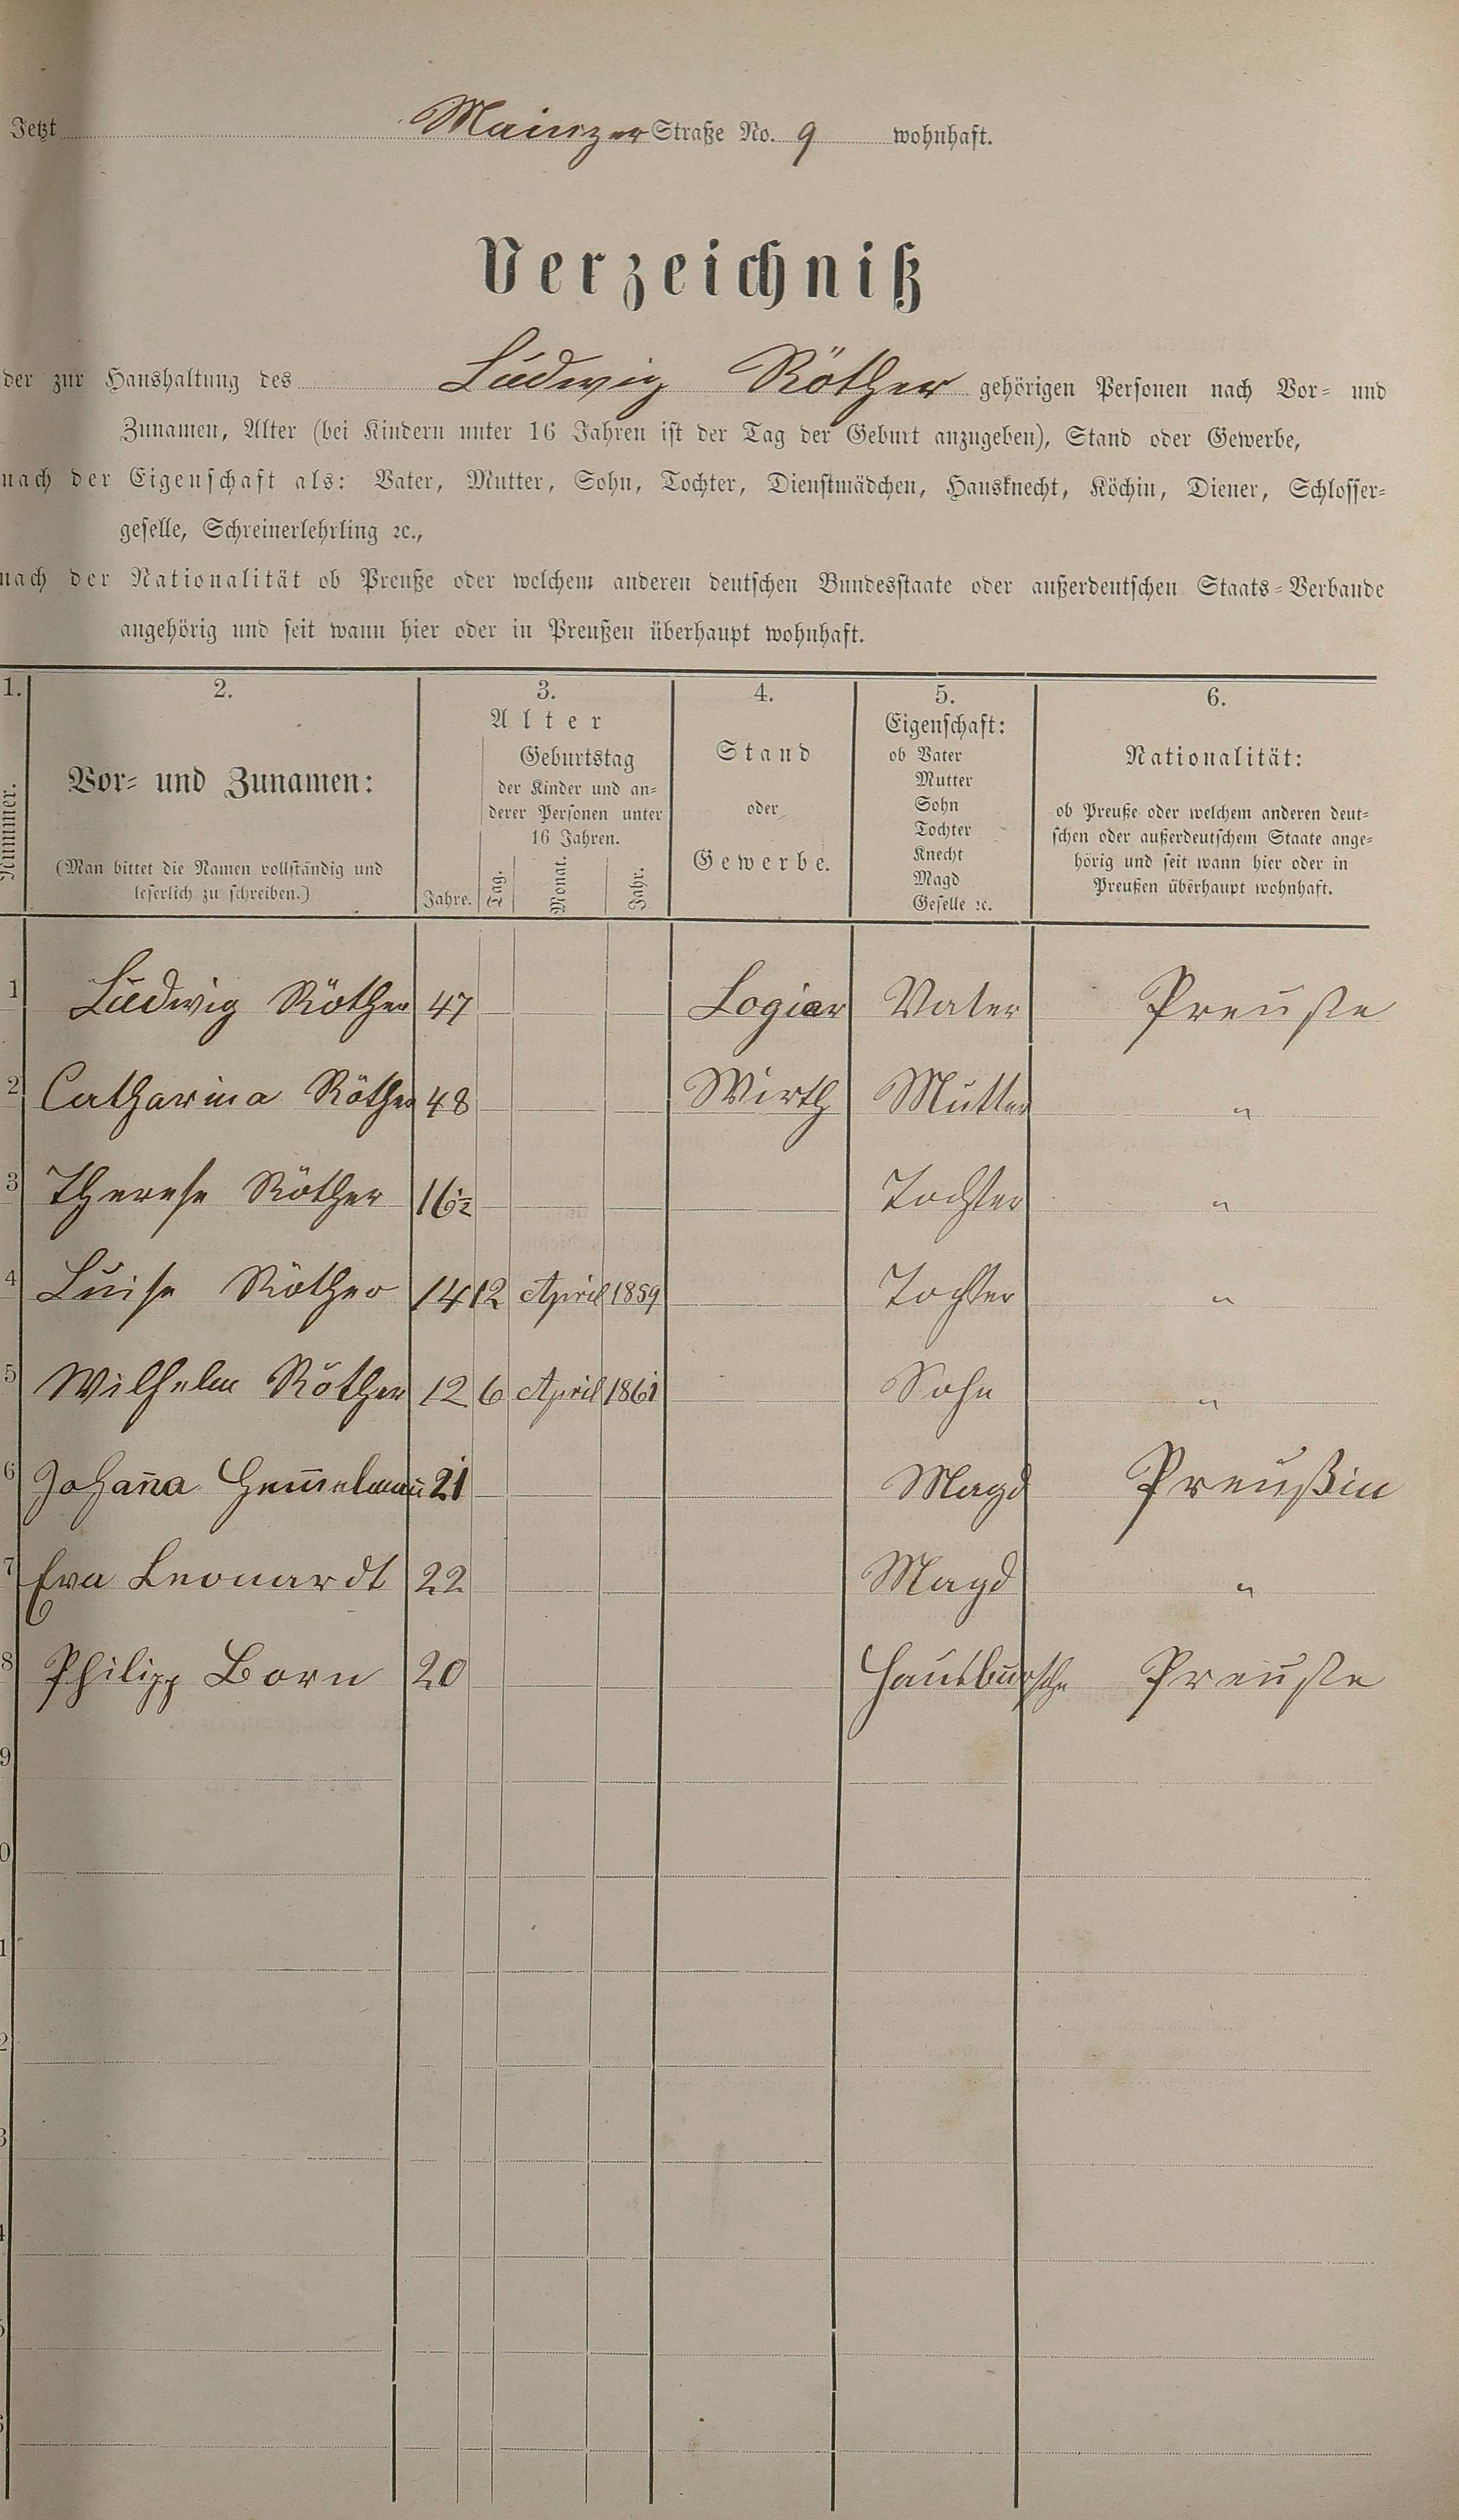 Jetzt Mainzer Straße No. 9 wohnhaft.
Verzeichniß
der zur Haushaltung des Ludwig Röther gehörigen Personen nach Vor- und
Zunamen, Alter (bei Kindern unter 16 Jahren ist der Tag der Geburt anzugeben), Stand oder Gewerbe,
nach der Eigenschaft als: Vater, Mutter, Sohn, Tochter, Dienstmädchen, Hausknecht, Köchin, Diener, Schlosser-
geselle, Schreinerlehrling ꝛc.,
nach der Nationalität ob Preuße oder welchem anderen deutschen Bundesstaate oder außerdeutschen Staats-Verbande
angehörig und seit wann hier oder in Preußen überhaupt wohnhaft.
1. 2. 3. 4. 5. 6.
Nummer.
Vor- und Zunamen:
(Man bittet die Namen vollständig und
leserlich zu schreiben.)
Alter
Geburtstag
der Kinder und an-
derer Personen unter
16 Jahren.
Jahre. Tag. Monat. Jahr.
Stand
oder
Gewerbe.
Eigenschaft:
ob Vater
Mutter
Sohn
Tochter
Knecht
Magd
Geselle ꝛc.
Nationalität:
ob Preuße oder welchem anderen deut-
schen oder außerdeutschem Staate ange-
hörig und seit wann hier oder in
Preußen überhaupt wohnhaft.
1 Ludwig Röther 47 Logier Vater Preuße
2 Catharina Röther 48 Wirth Mutter "
3 Therese Röther 16½ Tochter "
4 Luise Röther 14 12 April 1859 Tochter "
5 Wilhelm Röther 12 6 April 1861 Sohn "
6 Johan̅a 21 Magd Preußin
7 Eva Leonardt 22 Magd "
8 Philipp Born 20 Hausbursche Preuße
9
0
1
2
3
4
5
6